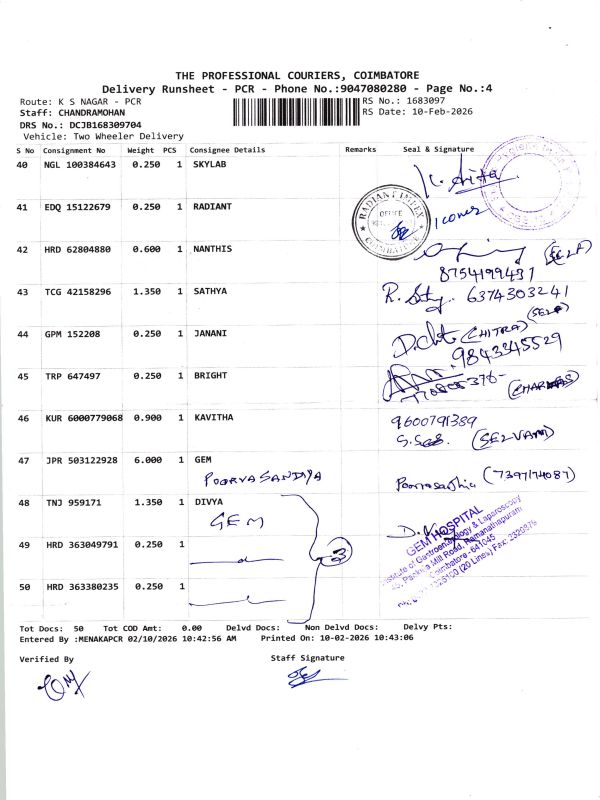 THE PROFESSIONAL COURIERS, COIMBATORE
Delivery Runsheet - PCR - Phone No.:9047080280 - Page No.:4
Route: K S NAGAR - PCR
RS No.: 1683097
Staff: CHANDRAMOHAN
RS Date: 10-Feb-2026
DRS No.: DCJB168309704
Vehicle: Two Wheeler Delivery
S No Consignment No Weight PCS Consignee Details Remarks Seal & Signature
40 NGL 100384643 0.250 1 SKYLAB
41 EDQ 15122679 0.250 1 RADIANT
RADIANT INDEX
COIMBATORE
1 cover
42 HRD 62804880 0.600 1 NANTHIS
(SELF)
8754199431
43 TCG 42158296 1.350 1 SATHYA
6374303241
(SELF)
44 GPM 152208 0.250 1 JANANI
(CHITRA)
9843345529
45 TRP 647497 0.250 1 BRIGHT
46 KUR 6000779068 0.900 1 KAVITHA
9600791389
(SELVAM)
47 JPR 503122928 6.000 1 GEM
POORVA SANDIYA
(7397174087)
48 TNJ 959171 1.350 1 DIVYA
GEM
GEM HOSPITAL
Institute of Gastroenterology & Laparoscopy
45, Pankaja Mill Road, Ramanathapuram
Coimbatore - 641045
49 HRD 363049791 0.250 1
3
50 HRD 363380235 0.250 1
Tot Docs: 50 Tot COD Amt: 0.00 Delvd Docs: Non Delvd Docs: Delvy Pts:
Entered By :MENAKAPCR 02/10/2026 10:42:56 AM Printed On: 10-02-2026 10:43:06
Verified By
Staff Signature